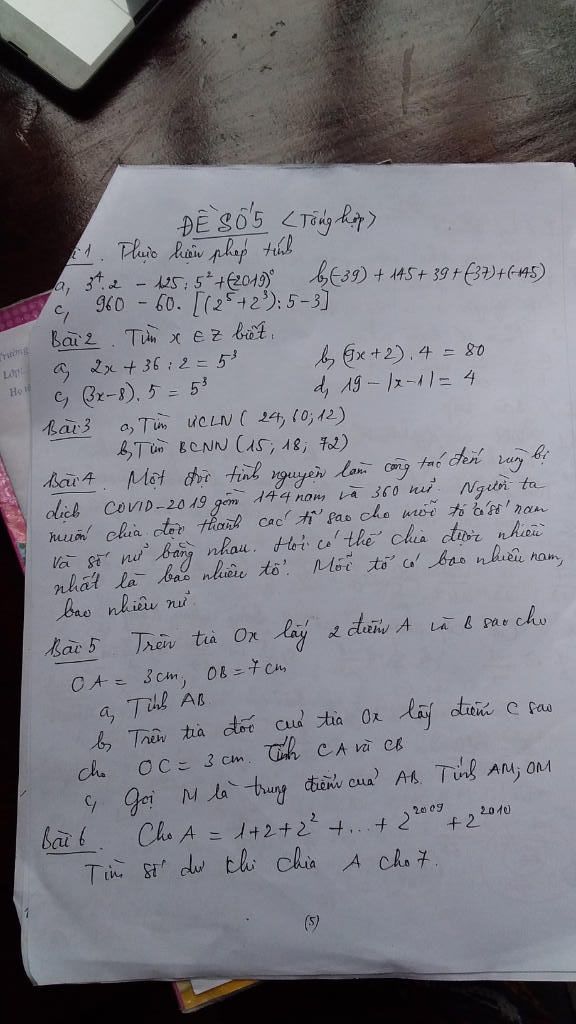 ĐỀ SỐ 5 (Tổng hợp)
1. Thực hiện phép tính
a, 3⁴.2 - 125:5² + (-2019)⁰ b, (-39) + 145 + 39 + (-37) + (-145)
c, 960 - 60.[(2⁵+2³):5-3]
Bài 2. Tìm x ∈ Z biết:
a, 2x + 36 : 2 = 5³ b, (9x+2).4 = 80
c, (3x-8).5 = 5³ d, 19 - |x-1| = 4
Bài 3 a, Tìm ƯCLN (24; 60; 12)
b, Tìm BCNN (15; 18; 72)
Bài 4. Một đội tình nguyện làm công tác đến vùng bị
dịch COVID-2019 gồm 144 nam và 360 nữ. Người ta
muốn chia đội thành các tổ sao cho mỗi tổ có số nam
và số nữ bằng nhau. Hỏi có thể chia được nhiều
nhất là bao nhiêu tổ. Mỗi tổ có bao nhiêu nam,
bao nhiêu nữ.
Bài 5 Trên tia Ox lấy 2 điểm A và B sao cho
OA = 3cm; OB = 7cm
a, Tính AB
b, Trên tia đối của tia Ox lấy điểm C sao
cho OC = 3cm. Tính CA và CB
c, Gọi M là trung điểm của AB. Tính AM; OM
Bài 6. Cho A = 1+2+2² + ... + 2²⁰⁰⁹ + 2²⁰¹⁰
Tìm số dư khi chia A cho 7.
(5)
Trường
Lớp: